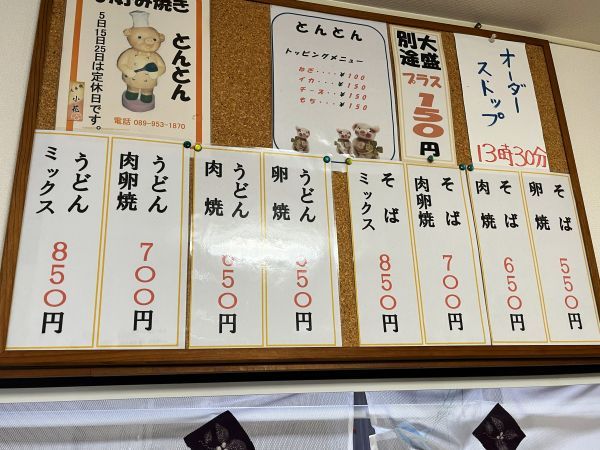 お好み焼き
とんとん
5日15日25日は定休日です。
小花
電話 089-953-1870
とんとん
トッピングメニュー
ねぎ・・・・¥100
イカ・・・・¥150
チーズ・・・¥150
もち・・・・¥150
大盛
別途
プラス
150円
オーダー
ストップ
13時30分
うどん
ミックス
850円
うどん
肉卵焼
700円
うどん
肉焼
650円
うどん
卵焼
550円
そば
ミックス
850円
そば
肉卵焼
700円
そば
肉焼
650円
そば
卵焼
550円